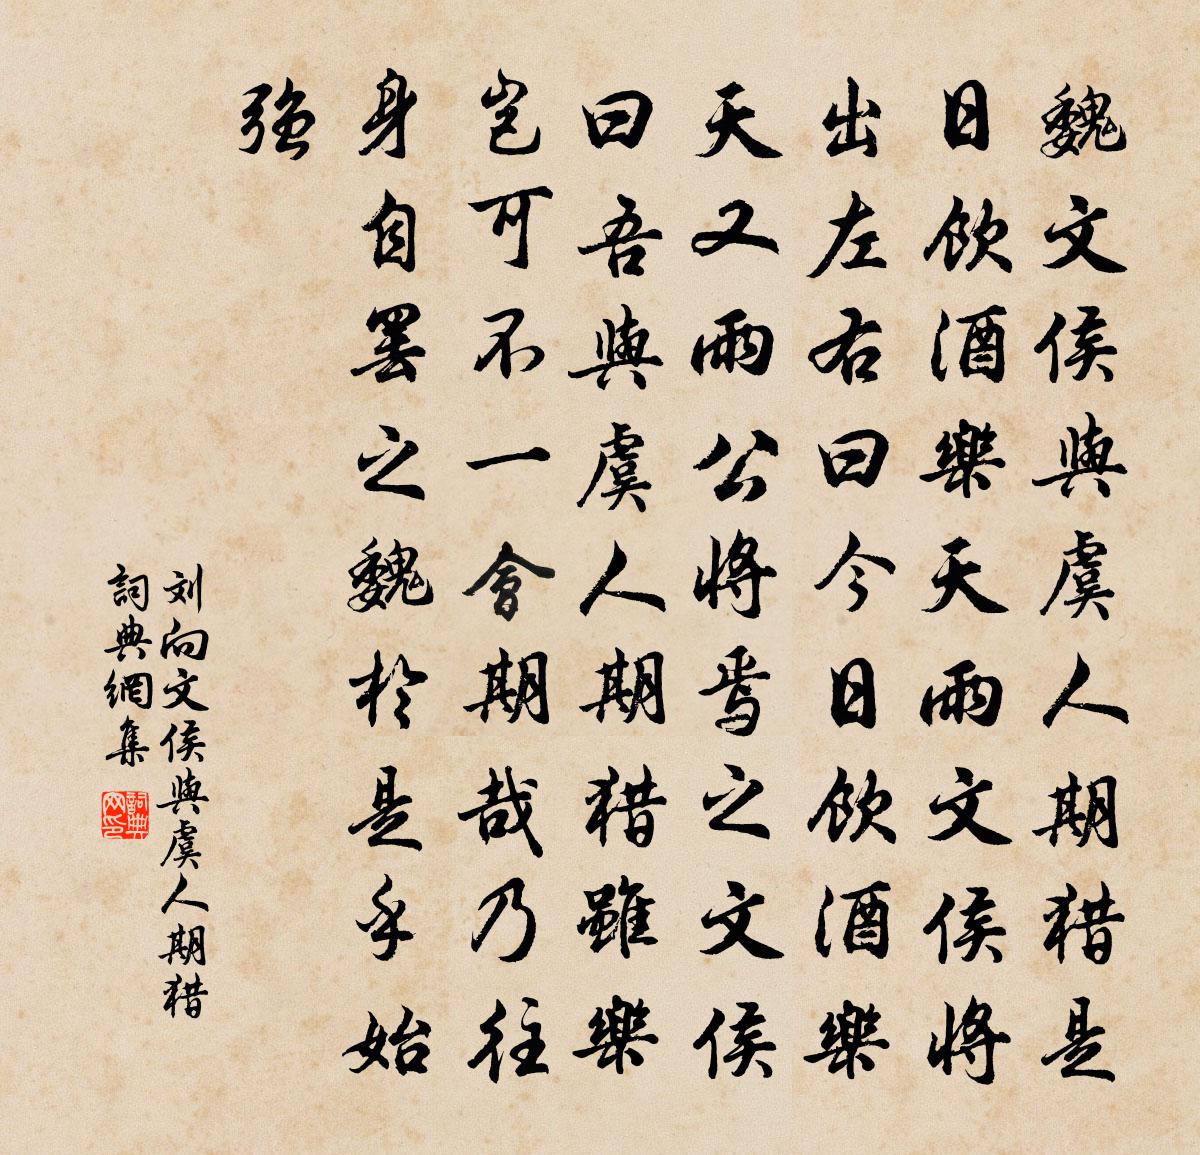 魏文侯與虞人期猎是
日飲酒樂天雨文侯將
出左右曰今日飲酒樂
天又雨公將焉之文侯
曰吾與虞人期猎雖樂
豈可不一會期哉乃往
身自罢之魏於是乎始
強
刘向文侯與虞人期猎
詞典網集
詞典网印